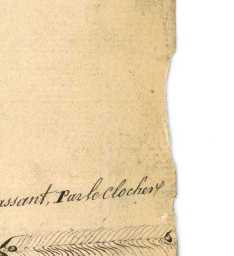 assant, Par le Clocher
6